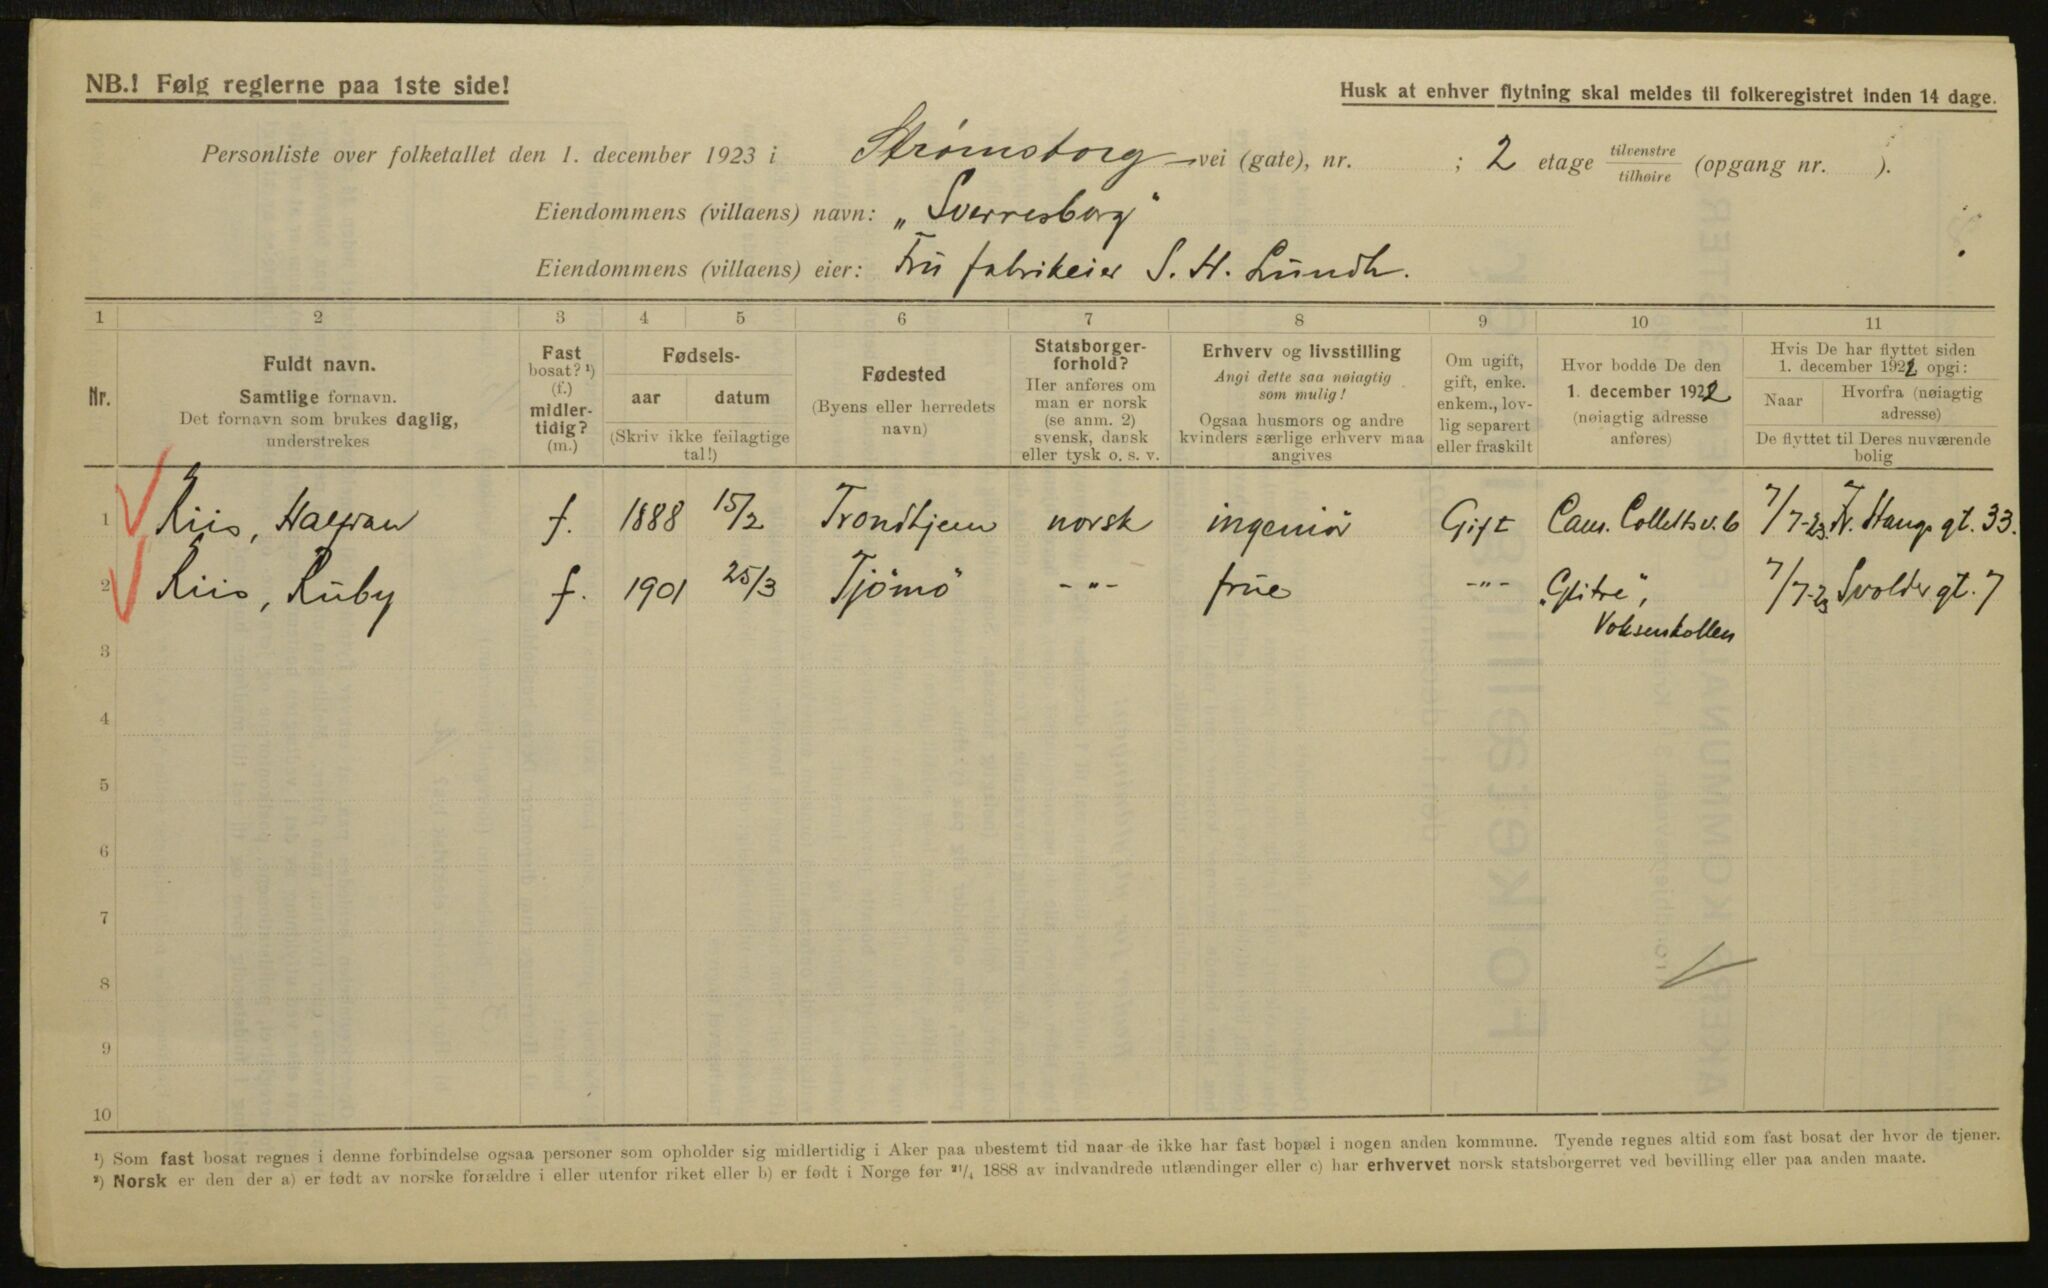 NB.! Følg reglerne paa 1ste side!
Husk at enhver flytning skal meldes til folkeregistret inden 14 dage.
Personliste over folketallet den 1. december 1923 i Strømsborg vei (gate), nr. ; 2 etage tilvenstre tilhøire (opgang nr. ).
Eiendommens (villaens) navn: „Sverresborg"
Eiendommens (villaens) eier: Fru fabrikeier S. H. Lundh.
1 2 3 4 5 6 7 8 9 10 11
Nr.
Fuldt navn.
Samtlige fornavn.
Det fornavn som brukes daglig,
understrekes
Fast
bosat? ¹)
(f.)
midler-
tidig?
(m.)
Fødsels-
aar datum
(Skriv ikke feilagtige
tal!)
Fødested
(Byens eller herredets
navn)
Statsborger-
forhold?
Her anføres om
man er norsk
(se anm. 2)
svensk, dansk
eller tysk o. s. v.
Erhverv og livsstilling
Angi dette saa nøiagtig
som mulig!
Ogsaa husmors og andre
kvinders særlige erhverv maa
angives
Om ugift,
gift, enke.
enkem., lov-
lig separert
eller fraskilt
Hvor bodde De den
1. december 1922
(nøiagtig adresse
anføres)
Hvis De har flyttet siden
1. december 1922 opgi:
Naar
Hvorfra (nøiagtig
adresse)
De flyttet til Deres nuværende
bolig
1 Riis, Halfdan f. 1888 15/2 Trondhjem norsk ingeniør Gift Cam. Colletts v. 6 7/7-23. Fr. Haugs gt. 33.
2 Riis, Ruby f. 1901 25/3 Tjömö -"- frue -"- „Glitre", 7/7-23 Svolder gt. 7
Voksenkollen
3
4
5
6
7
8
9
10
¹) Som fast bosat regnes i denne forbindelse ogsaa personer som opholder sig midlertidig i Aker paa ubestemt tid naar de ikke har fast bopæl i nogen anden kommune. Tyende regnes altid som fast bosat der hvor de tjener.
²) Norsk er den der a) er født av norske forældre i eller utenfor riket eller b) er født i Norge før ²¹/₄ 1888 av indvandrede utlændinger eller c) har erhvervet norsk statsborgerret ved bevilling eller paa anden maate.